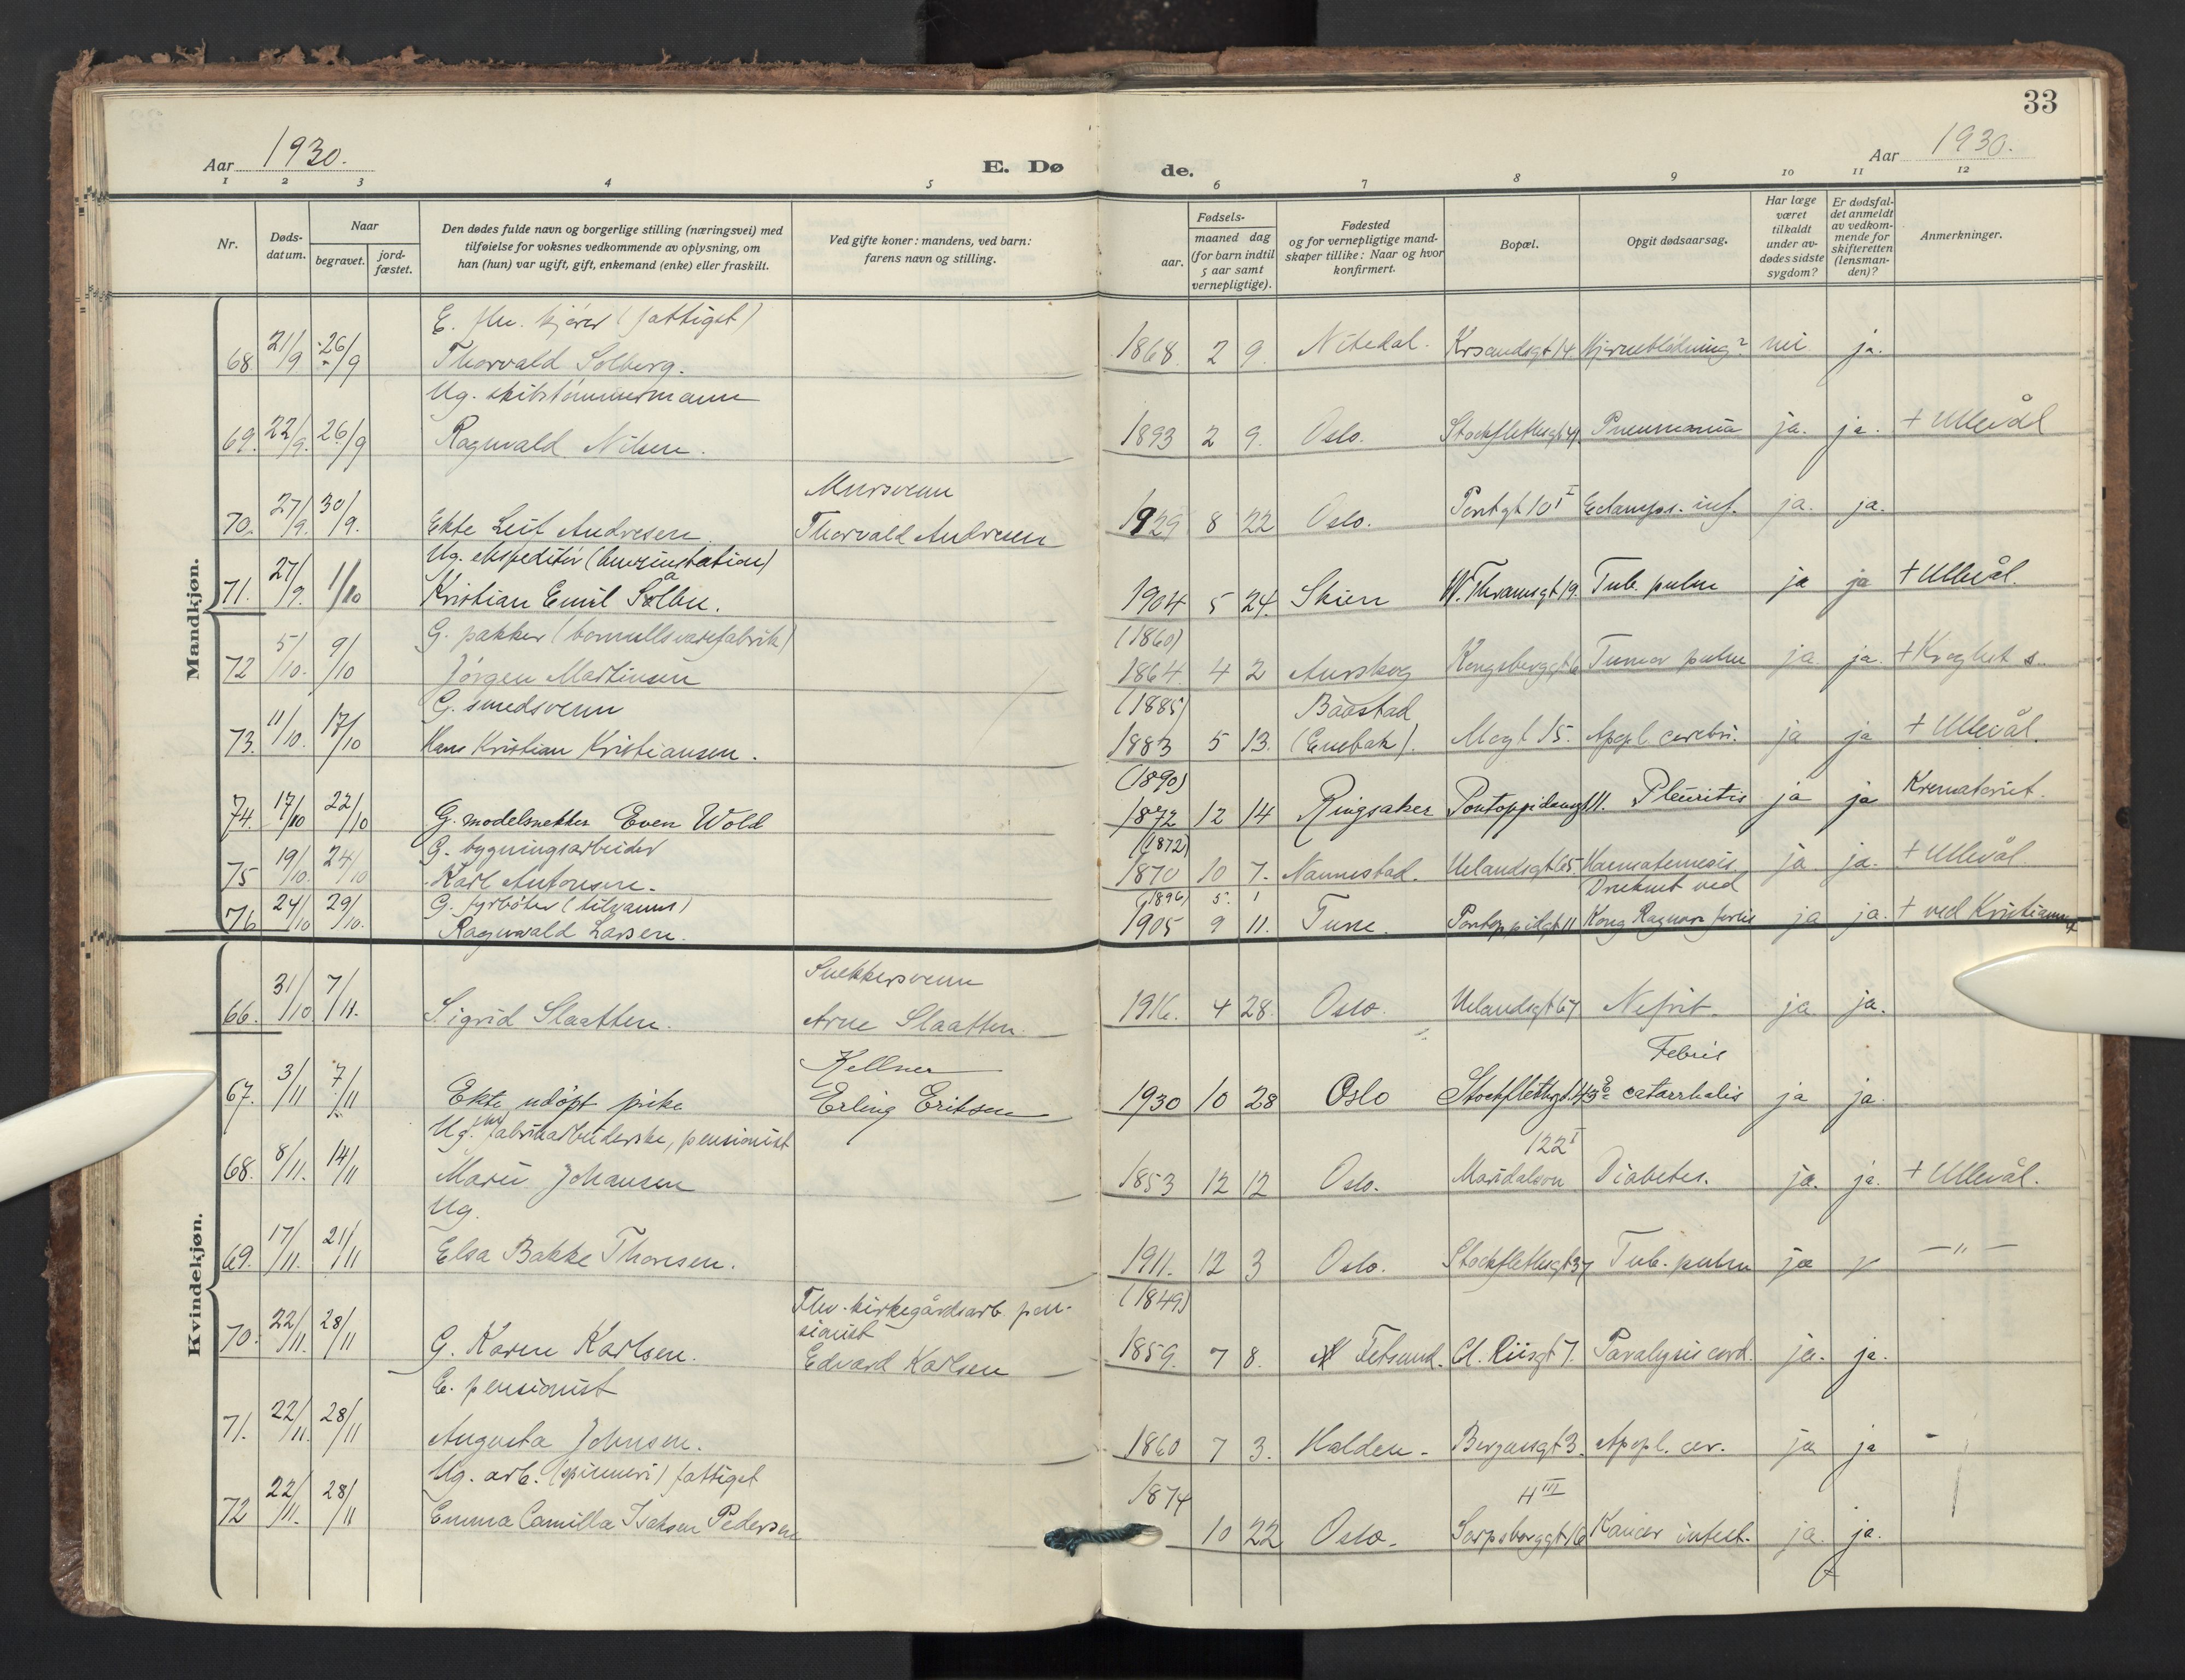 33
Aar 1930.
E. Døde.
Aar 1930.
1 2 3 4 5 6 7 8 9 10 11 12
Nr.
Døds-datum.
Naar
begravet.
jord-fæstet.
Den dødes fulde navn og borgerlige stilling (næringsvei) med
tilføielse for voksnes vedkommende av oplysning, om
han (hun) var ugift, gift, enkemand (enke) eller fraskilt.
Ved gifte koner: mandens, ved barn:
farens navn og stilling.
Fødsels-
aar.
maaned dag
(for barn indtil
5 aar samt
vernepligtige).
Fødested
og for vernepligtige mand-
skaper tillike: Naar og hvor
konfirmert.
Bopæl.
Opgit dødsaarsag.
Har læge
været
tilkaldt
under av-
dødes sidste
sygdom?
Er dødsfal-
det anmeldt
av vedkom-
mende for
skifteretten
(lensman-
den)?
Anmerkninger.
Mandkjøn.
E. fhv. kjører (fattiget)
68. 21/9 26/9 Thorvald Solberg. 1868. 2 9. Nitedal. Krsandsgt 14. Hjerneblødning? nei ja.
Ug. skibstømmermann
69. 22/9. 26/9 Ragnvald Nilsen. 1893 2 9. Oslo. Stockflethsgt 41. Pneumonia ja. ja. + Ullevål
Mursvenn
70. 27/9. 30/9. Ekte Leif Andresen. Thorvald Andresen 1929 8 22 Oslo. Pontgt 10 I Eclamps. inf. ja. ja.
Ug. ekspeditør (bensinstation)
71. 27/9. 1/10 Kristian Emil Sølbu. 1904 5 24. Skien W. Thranesgt 19. Tub. pulm ja ja + Ullevål.
G. pakker (bomullsvarefabrik) (1860)
72 5/10. 9/10 Jørgen Martinsen 1864. 4 2 Aurskog Kongsberggt 6 Tumor pulm ja. ja. + Kroghst s.
G. smedsvenn (1885) Båstad
73. 11/10. 17/10 Hans Kristian Kristiansen. 1883 5 13. (Enebak). Mogt 15. Apopl. cerebri. ja ja + Ullevål.
(1890)
74. 17/10 22/10 G. modelsnekker Even Wold 1872 12 14 Ringsaker Pontoppidansgt 11. Pleuritis ja ja Krematoriet.
G. bygningsarbeider (1872)
75 19/10. 24/10 Karl Antonsen. 1870 10 7. Nannestad. Uelandsgt 65 Haematemesis. ja ja. + Ullevål
G. fyrbøter (tilvanns) (1896) 5. 1 Druknet ved
76 24/10 29/10. Ragnvald Larsen. 1905 9 11. Tune. Pontoppidgt 11 Kong Ragnars forlis ja ja. + ved Kristiansund
Kvindekjøn.
Snekkersvenn
66. 31/10 7/11. Sigrid Slaatten. Arne Slaatten. 1916. 4 28. Oslo. Uelandsgt 67 Nefrit. ja ja.
Kellner Febris
67. 3/11 7/11 Ekte udøpt pike Erling Eriksen 1930 10 28 Oslo Stockflethsgt. 43 E catarrhalis ja ja
Ug. fhv fabrikarbeiderske, pensionist 122 I
68. 8/11. 14/11 Marie Johansen 1853 12 12 Oslo. Maridalsvn Diabetes. ja. ja. + Ullevål.
Ug.
69. 17/11. 21/11 Elsa Bakke Thoresen. 1911. 12 3 Oslo. Stockflethsgt 37 Tub. pulm ja — " —
Fhv. kirkegårdsarb. pen- (1849)
sionist
70. 22/11. 28/11 G. Karen Karlsen. Edvard Karlsen 1859. 7 8. Fetsund. Cl. Riisgt 7. Paralysis cord. ja. ja.
E. pensionist
71. 22/11. 28/11 Augusta Johnsen. 1860 7 3. Halden. Bergansgt 3. Apopl. cer. ja ja -
Ug. arb. (spinneri) fattiget 1874 H III
72 22/11. 28/11 Emma Camilla Isaksen Pedersen 10 22 Oslo. Sarpsborggt 16 Kancer intest. ja. ja.